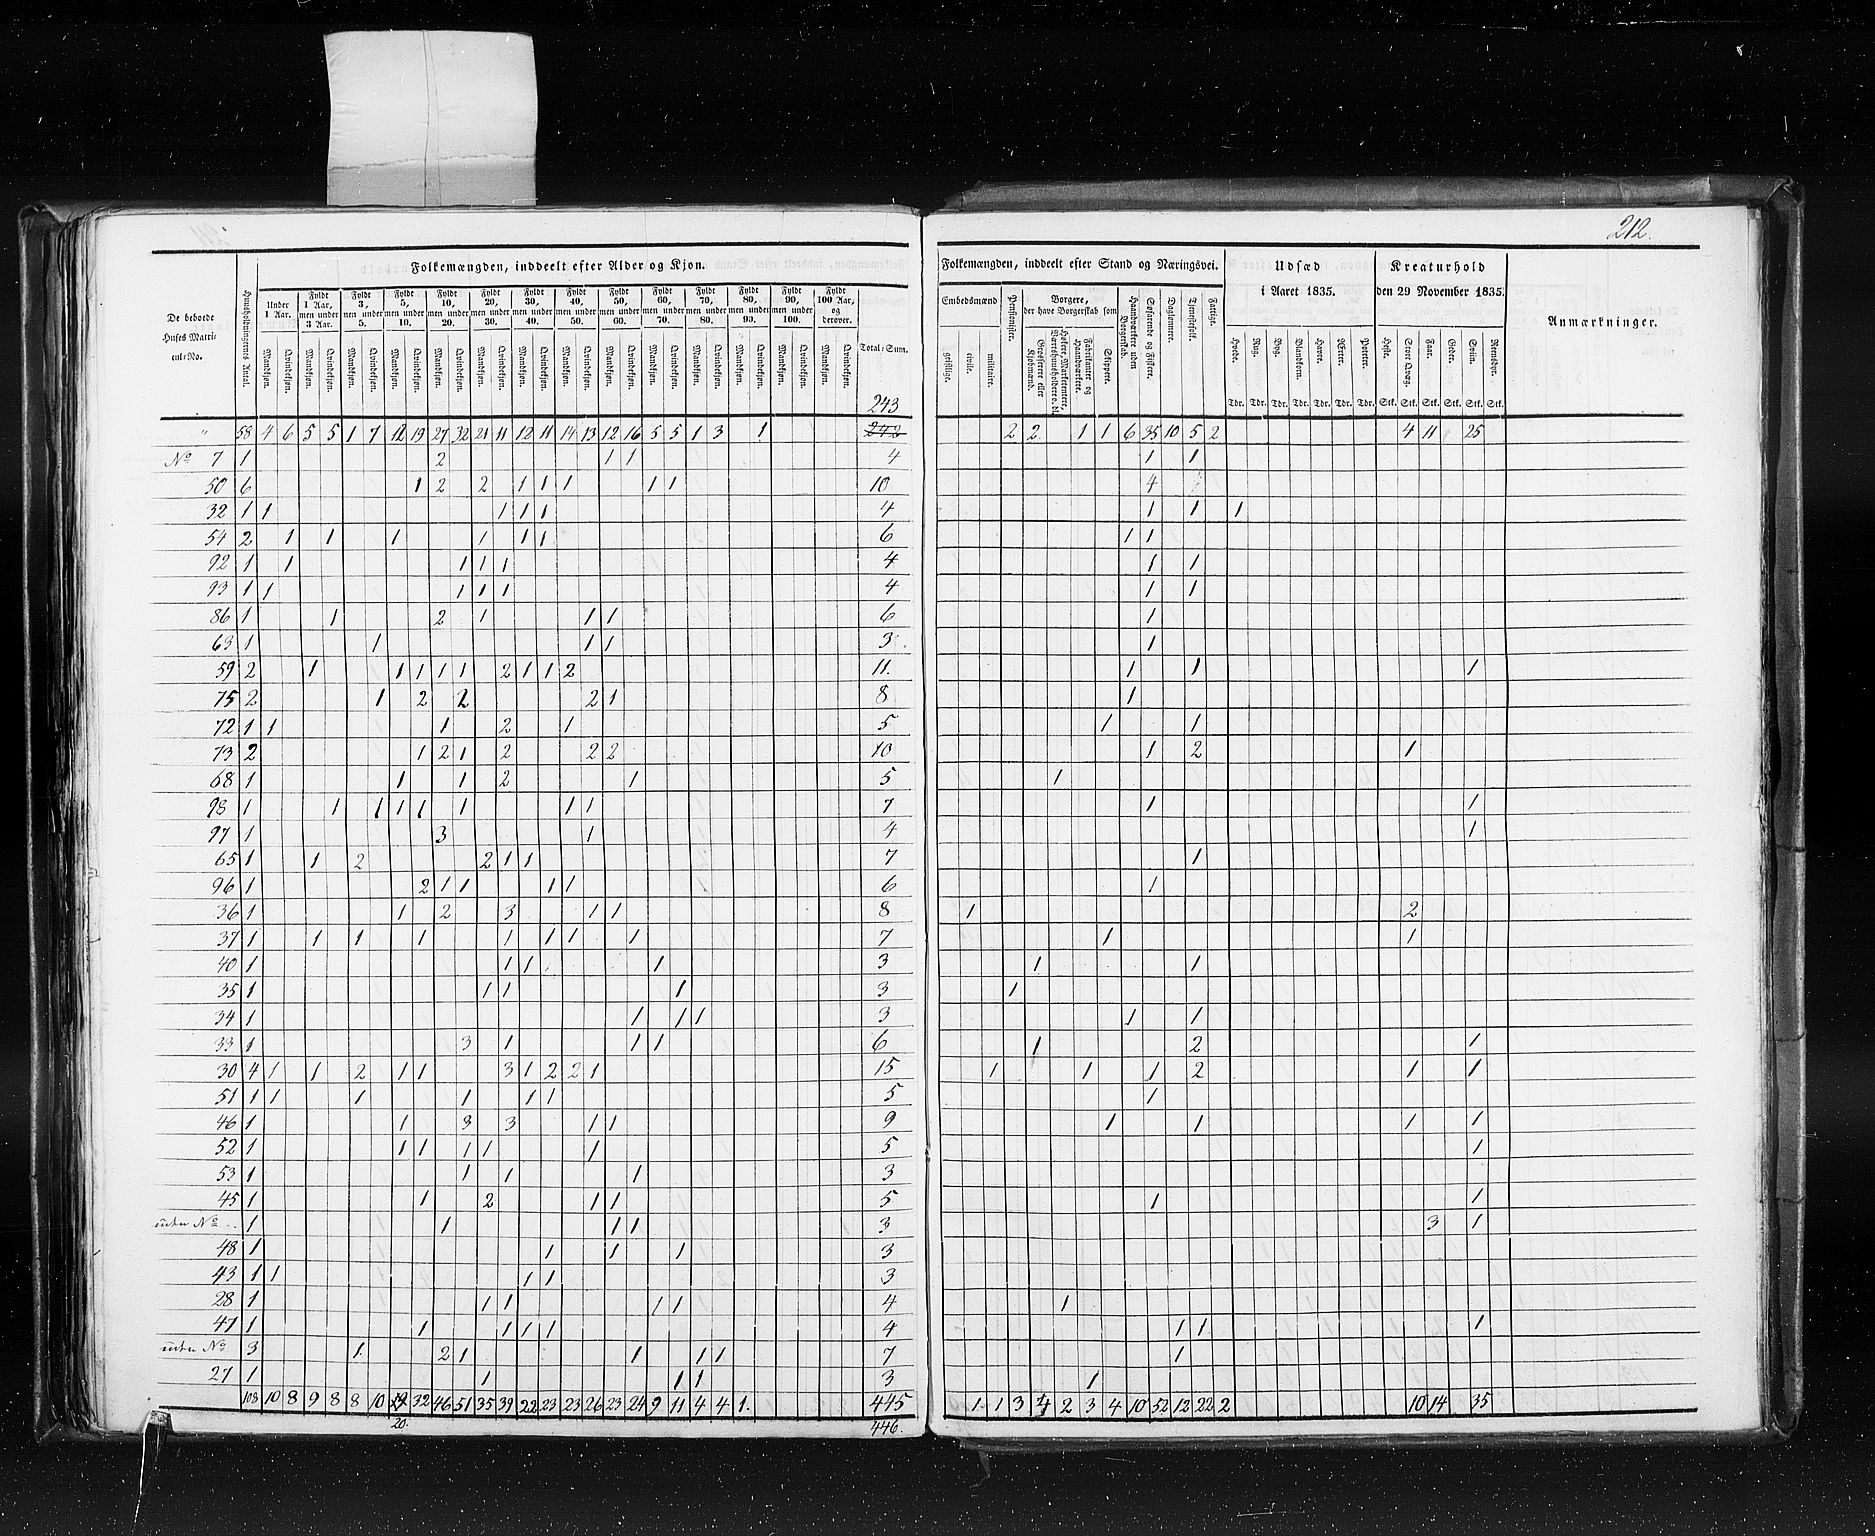 212.
De beboede Huses Matricul-No.
Huusholdningernes Antal.
Folkemængden, inddeelt efter Alder og Kjøn.
Under 1 Aar.
Fyldt 1 Aar, men under 3 Aar.
Fyldt 3, men under 5.
Fyldt 5, men under 10.
Fyldt 10, men under 20.
Fyldt 20, men under 30.
Fyldt 30, men under 40.
Fyldt 40, men under 50.
Fyldt 50, men under 60.
Fyldt 60, men under 70.
Fyldt 70, men under 80.
Fyldt 80, men under 90.
Fyldt 90, men under 100.
Fyldt 100 Aar, og derover.
Mandkjøn. Qvindekjøn. Mandkjøn. Qvindekjøn. Mandkjøn. Qvindekjøn. Mandkjøn. Qvindekjøn. Mandkjøn. Qvindekjøn. Mandkjøn. Qvindekjøn. Mandkjøn. Qvindekjøn. Mandkjøn. Qvindekjøn. Mandkjøn. Qvindekjøn. Mandkjøn. Qvindekjøn. Mandkjøn. Qvindekjøn. Mandkjøn. Qvindekjøn. Mandkjøn. Qvindekjøn. Mandkjøn. Qvindekjøn.
Total-Sum.
Folkemængden, inddeelt efter Stand og Næringsvei.
Embedsmænd
geistlige. civile. militaire.
Pensionister.
Borgere, der have Borgerskab som
Grosserere eller Kjøbmænd.
Høkere, Marketentere, Værtshuusholdere o. dl.
Fabrikanter og Haandværkere.
Skippere.
Haandværkere uden Borgerskab.
Søefarende og Fiskere.
Daglønnere.
Tjenestefolk.
Fattige.
Udsæd i Aaret 1835.
Hvede. Rug. Byg. Blandkorn. Havre. Ærter. Poteter.
Tdr. Tdr. Tdr. Tdr. Tdr. Tdr. Tdr.
Kreaturhold den 29 November 1835.
Heste. Stort Qvæg. Faar. Geder. Sviin. Reensdyr.
Stk. Stk. Stk. Stk. Stk. Stk.
Anmærkninger.
243
" 58 4 6 5 5 1 7 12 19 27 32 21 11 12 11 14 13 12 16 5 5 1 3 1 242 2 2 1 1 6 35 10 5 2 4 11 25
No 7 1 2 1 1 4 1 1
50 6 1 2 2 1 1 1 1 1 10 4
32 1 1 1 1 1 4 1 1 1
54 2 1 1 1 1 1 1 6 1 1
92 1 1 1 1 1 4 1 1
93 1 1 1 1 1 4 1 1
86 1 1 2 1 1 1 6 1
63 1 1 1 1 3 1
59 2 1 1 1 1 1 2 1 1 2 11. 1 1 1
75 2 1 2 2 2 1 8 1
72 1 1 1 2 1 5 1 1
73 2 1 2 1 2 2 2 10 1 2 1
68 1 1 1 2 1 5 1
98 1 1 1 1 1 1 1 1 7 1 1
97 1 3 1 4 1
65 1 1 2 2 1 1 7 1
96 1 2 1 1 1 1 6 1
36 1 1 2 3 1 1 8 1 2
37 1 1 1 1 1 1 1 1 7 1 1
40 1 1 1 1 3 1 1
35 1 1 1 1 3 1
34 1 1 1 1 3 1 1
33 1 3 1 1 1 6 1 2 1
30 4 1 1 2 1 1 3 1 2 2 1 15 1 1 1 2 1 1
51 1 1 1 1 1 1 5 1
46 1 1 3 3 1 1 9 1 1 1 1
52 1 1 1 1 1 1 5 1
53 1 1 1 1 3
45 1 1 2 1 1 5 1 1
uden No 1 1 1 1 3 3 1
48 1 1 1 1 3
43 1 1 1 1 3
28 1 1 1 1 1 4 1
47 1 1 1 1 1 4 1 1 1
uden No 3 1 2 1 1 1 1 7 1
27 1 1 1 1 3 1
108 10 8 9 8 8 10 19 32 46 51 35 39 22 23 23 26 23 24 9 11 4 4 1. 445 1. 1 3 4 2 3 4 10 52 12 22 2 10 14 35
20. 446.